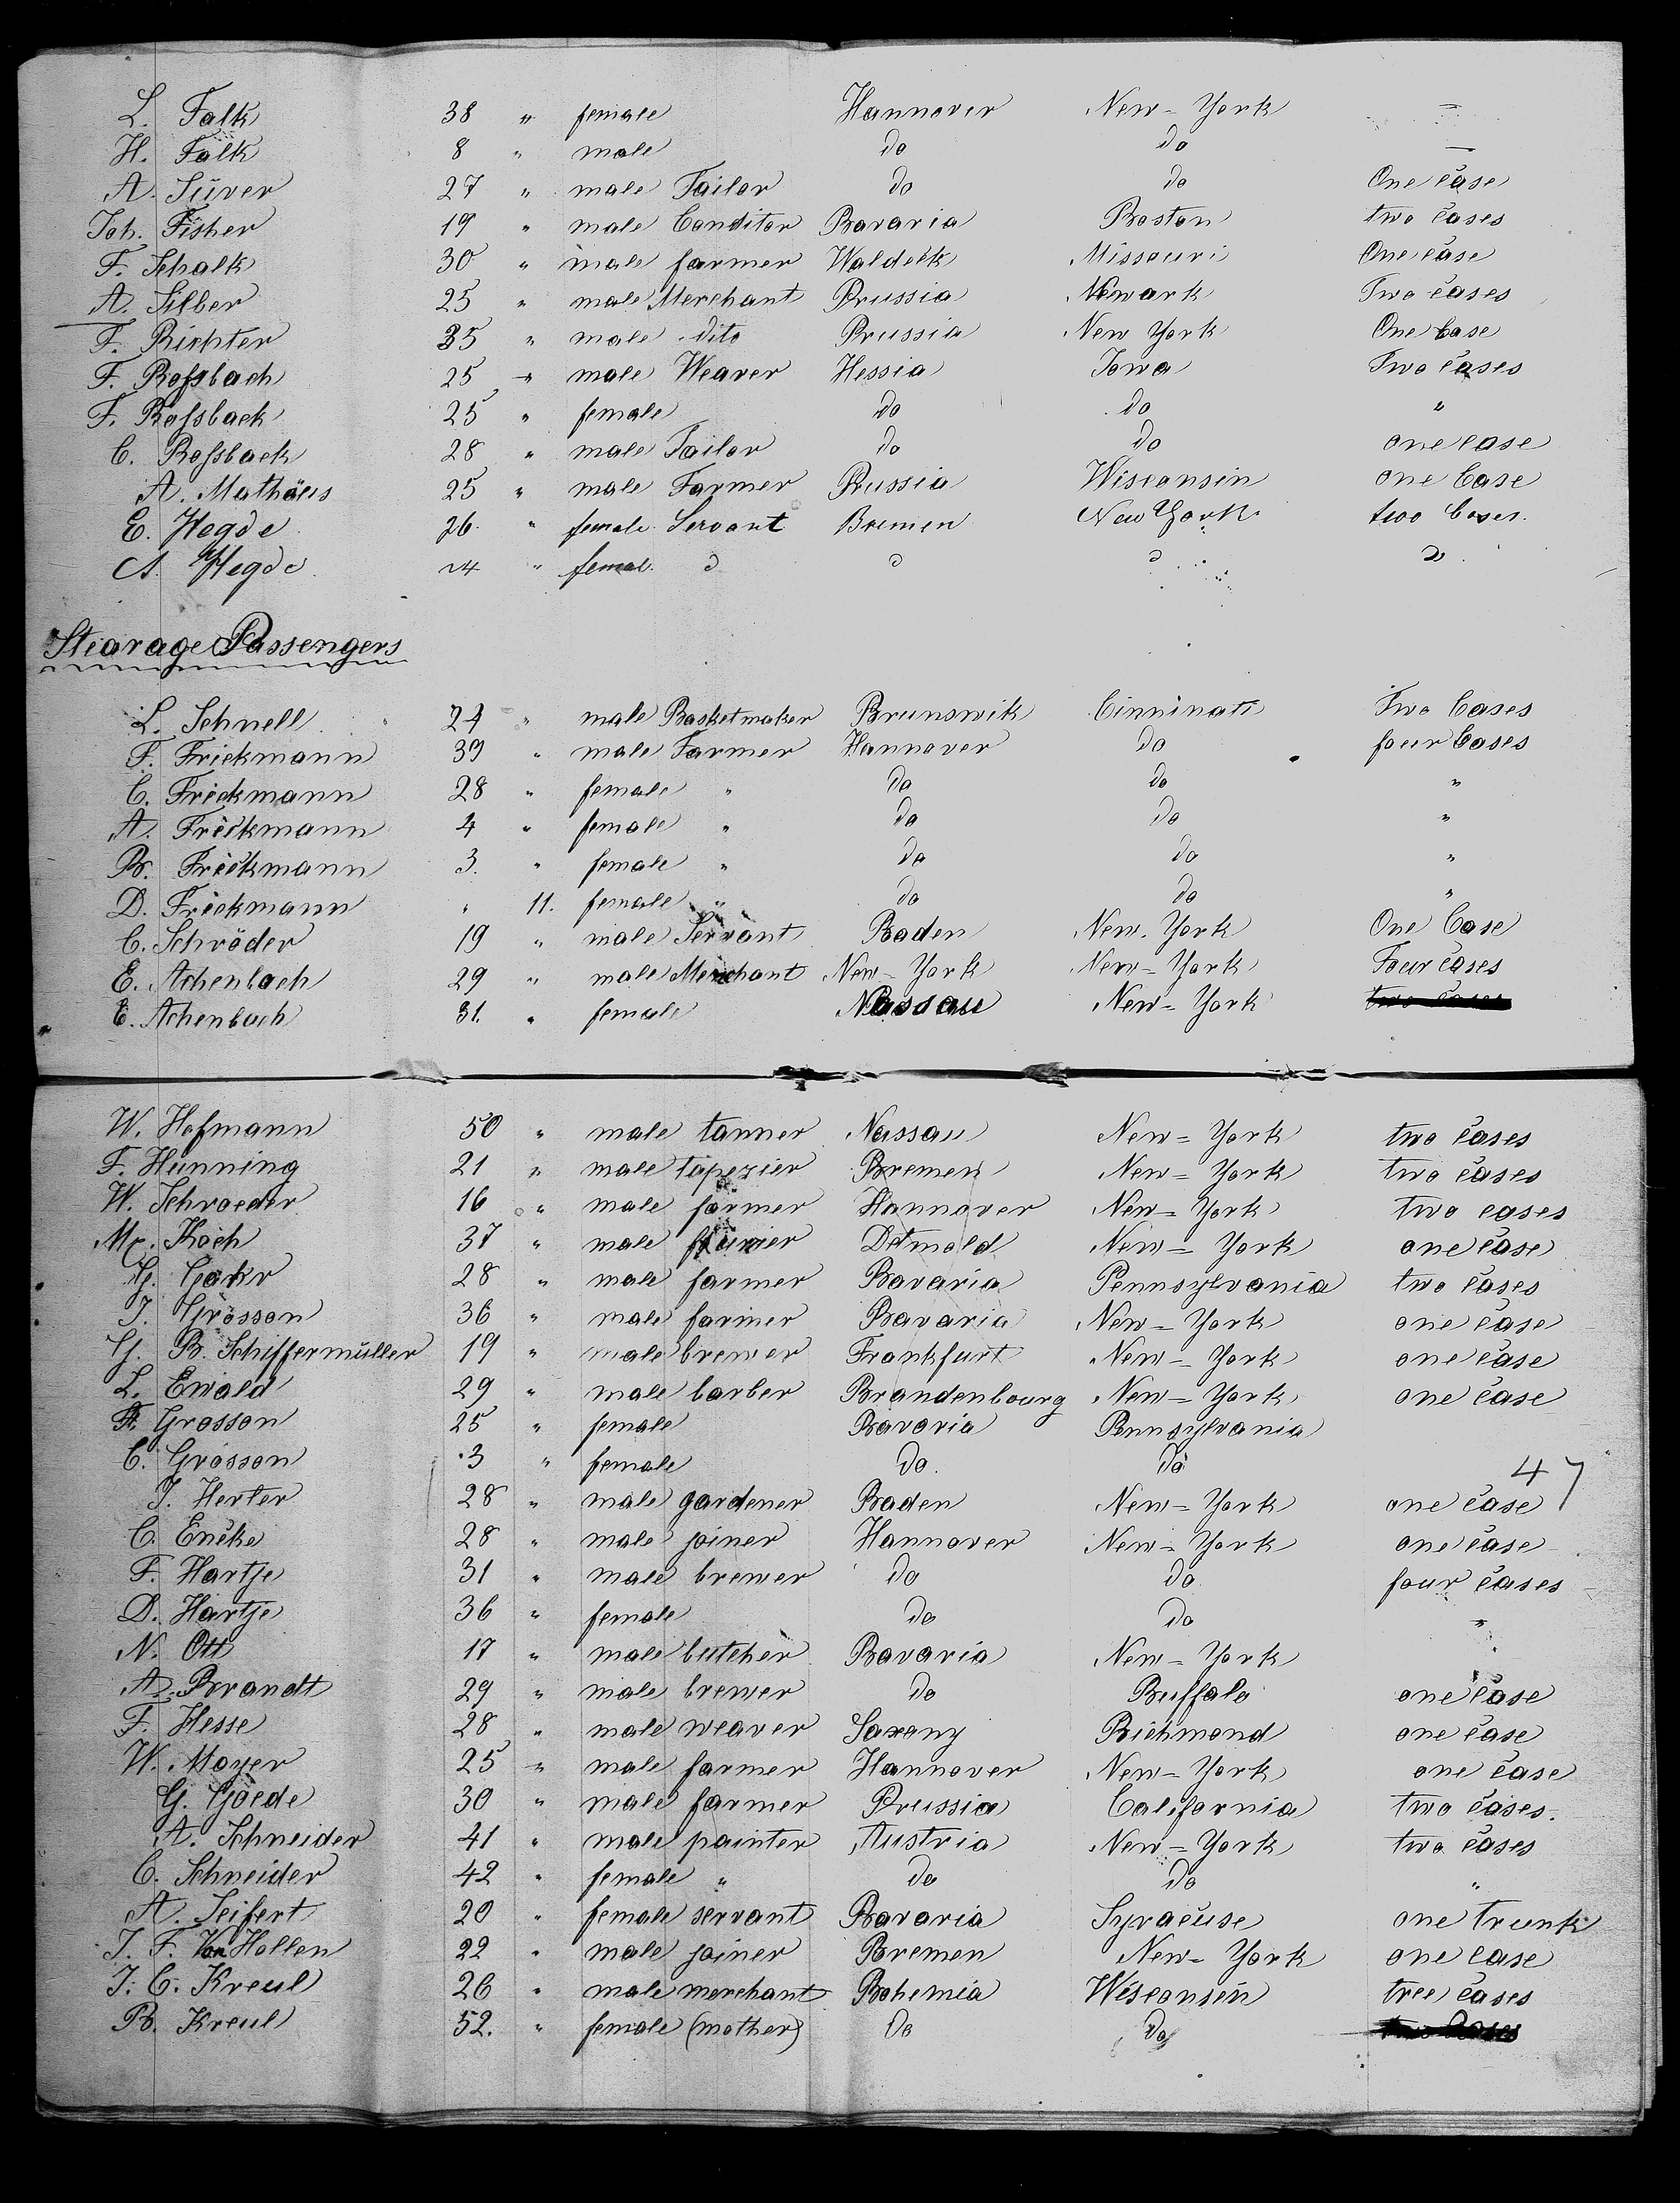 L. Falk 38 " female Hannover New-York =
H. Falk 8 " male do do —
A. Süver 27 " male Tailor do do One Case
Joh. Fisher 19 " male Conditor Bavaria Boston two Cases
F. Schalk 30 " male farmer Waldeck Missouri One Case
A. Silber 25 " male Merchant Prussia Newark Two Cases
F. Richter 35 " male dito Prussia New York One Case
F. Roſsbach 25 " male Weaver Hessia Iowa Two Cases
F. Roſsback 25 " female do do "
C. Roſsback 28 " male Tailor do do one case
A. Mathäus 25 " male Farmer Prussia Wisconsin one Case
E. Hegde 26 " female Servant Bremen New York two Cases.
A. Hegde 24 " femal. d d d d
Stearage Passengers
L. Schnell 24 " male Basketmaker Brunswik Cinninati Two Cases
F. Frickmann 39 " male Farmer Hannover do four Cases
C. Frickmann 28 " female " do do "
A. Frickmann 4 " female " do do "
B. Frickmann 3. " female " do do "
D. Frickmann " 11. female " do do "
C. Schröder 19 " male Servant Baden New-York One Case
E. Achenbach 29 " male Merchant New-York New-York Four Cases
E. Achenbach 31. " female Nassau New-York two Cases
W. Hofmann 50 " male tanner Nassau New-York two Cases
F. Hünning 21 " male tapezier Bremen New-York two Cases
W. Schroeder 16 " male farmer Hannover New-York two cases
Koch 37 " male Detmold New-York one Case
G. 28 " male farmer Bavaria Pennsylvania two Cases
J. Grosson 36 " male farmer Bavaria New-York one Case
G. B. Schiffermüller 19 " male brewer Frankfurt New-York one Case
L. Ewald 29 " male barber Brandenbourg New-York one Case
F. Grosson 25 " female Bavaria Pennsylvania
C. Grosson 3 " female do. do 47
J. Herter 28 " male gardener Baden New-York one Case
C. Encke 28 " male joiner Hannover New-York one Case
F. Hartje 31 " male brewer do do four Cases
D. Hartje 36 " female do do "
N. Ott 17 " male butcher Bavaria New-York "
A. Brandt 29 " male brewer do Buffalo one Case
F. Hesse 28 " male weaver Saxony Richmond one Case
W. Moyer 25 " male farmer Hannover New-York one Case
G. Göede 30 " male farmer Prussia California two Cases.
A. Schneider 41 " male painter Austria New-York two Cases
C. Schneider 42 " female " do do "
A. Seifert 20 " female servant Bavaria Syracuse one trunk
J. F. Von Hollen 22 " male joiner Bremen New-York one case
J. C. Kreul 26 " male merchant Bohemia Wisconsin tree Cases
B. Kreul 52. " female (mother) do do two Cases